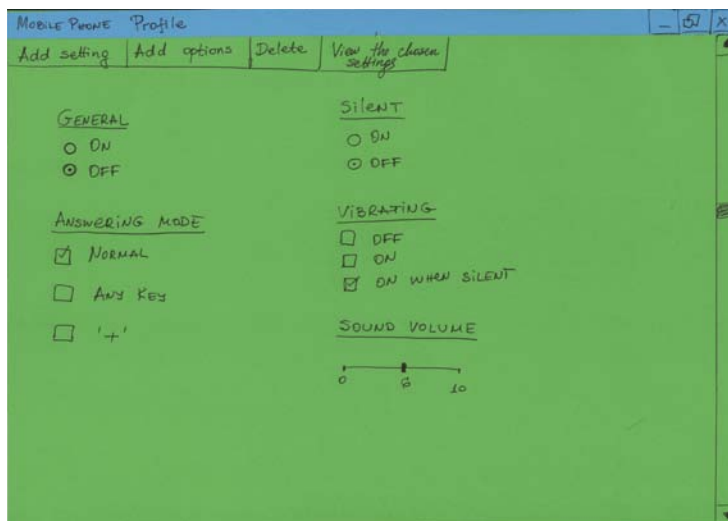 MOBILE PHONE Profile
Add setting Add options Delete View the chosen settings
GENERAL
ON
OFF
ANSWERING MODE
NORMAL
ANY KEY
'+'
SILENT
ON
OFF
VIBRATING
OFF
ON
ON WHEN SILENT
SOUND VOLUME
0 6 10